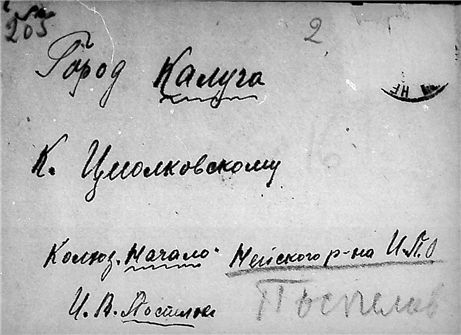 205
2
Город Калуга
К. Циолковскому
Колхоз. Начало Нейского р-на И.П.О
И. В. Поспелов
Поспелов